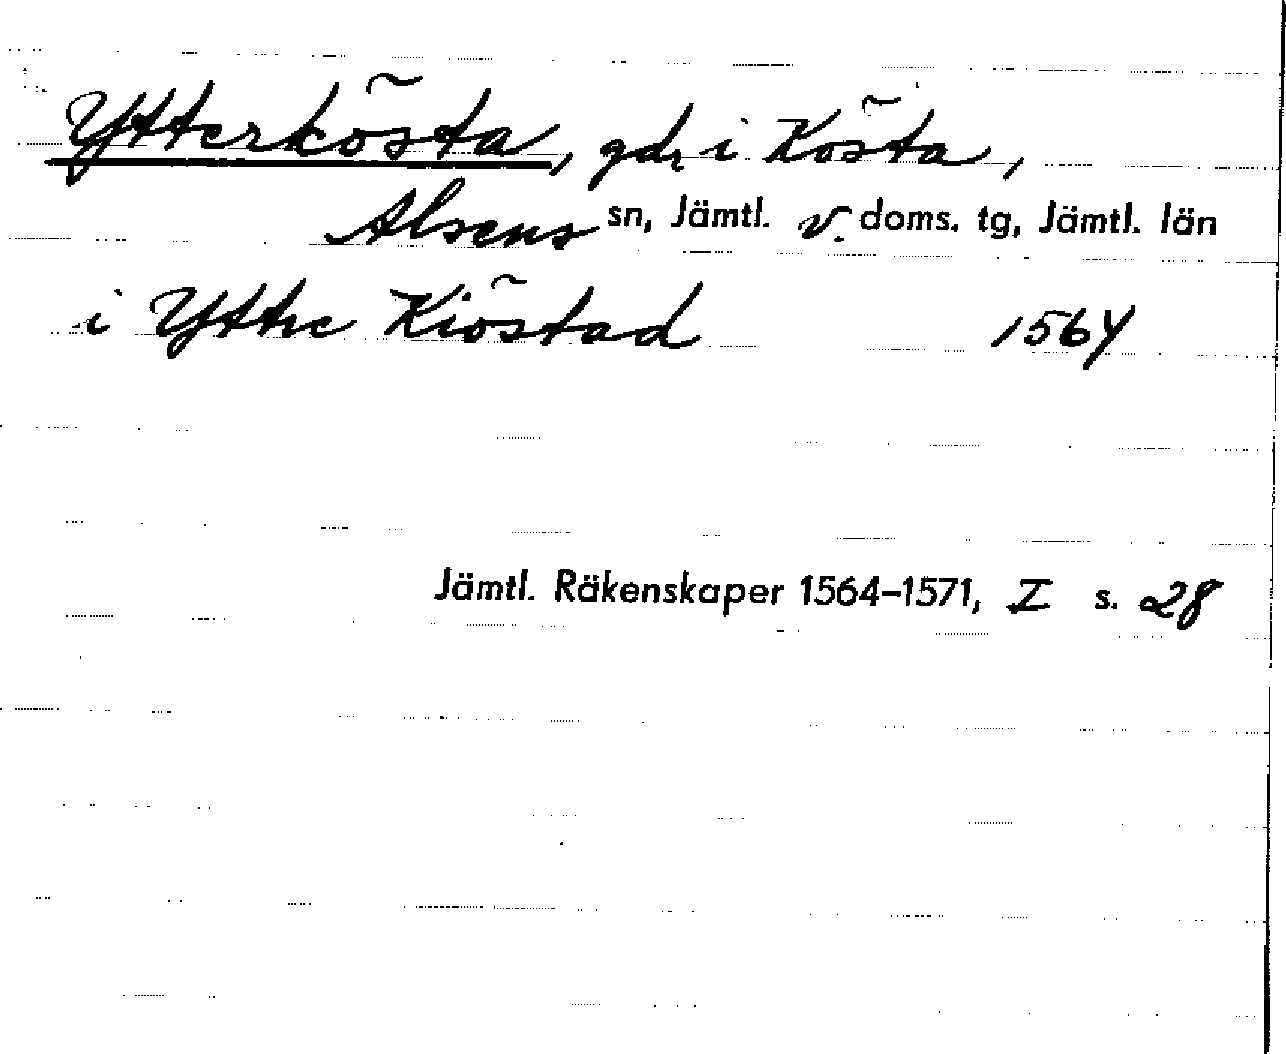 Ytterkösta, gdr i Kösta,
Alsens sn, Jämtl. v. doms. tg, Jämtl. län
i Yttre Kiöstad 1564
Jämtl. Räkenskaper 1564–1571, I s. 28